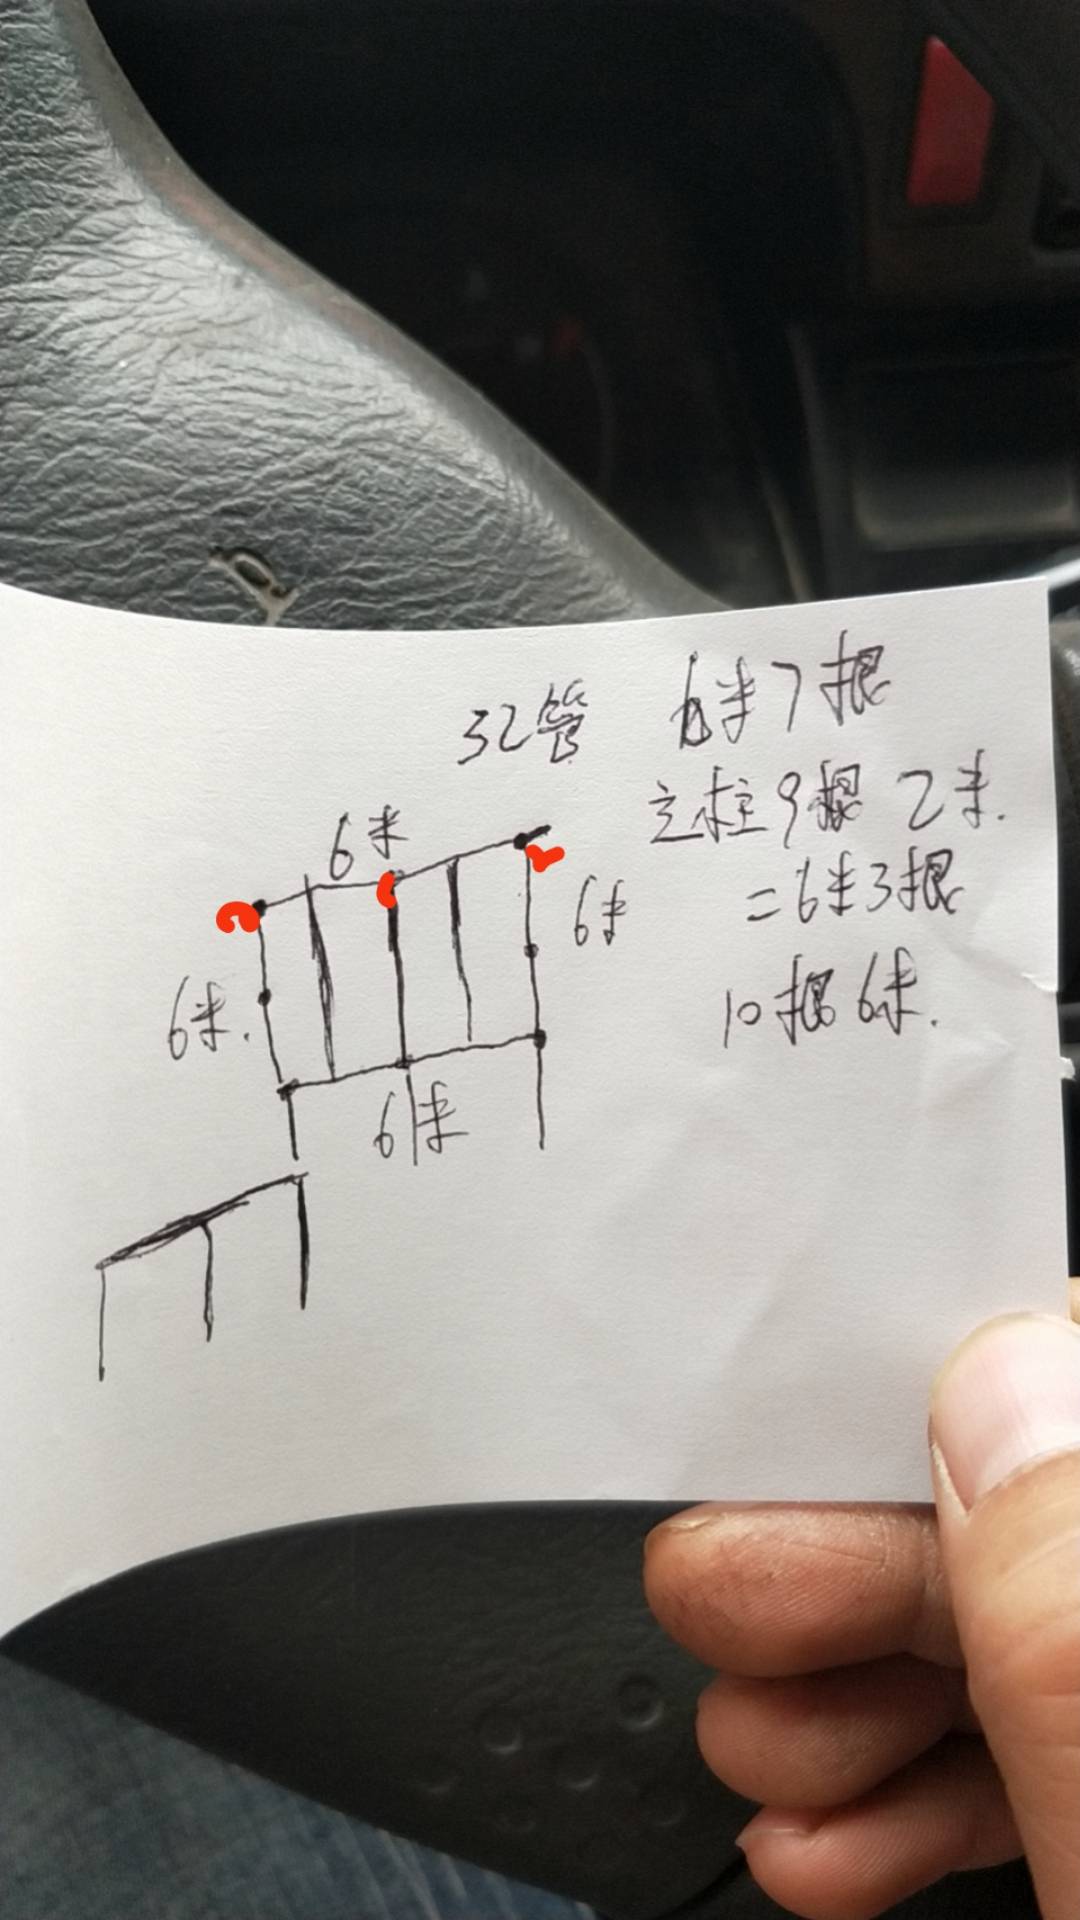 32管 6米7根
立柱9根 2米.
=6米3根
10根6米.
6米
6米
6米.
6米